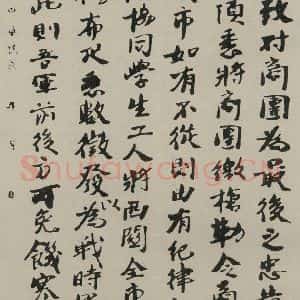 致对商團為最後之忠告
須悉將商團繳槍勒令
市如有不從即由有紀律
協同學生工人將西關全市
布疋悉數徵發以為戰時
此則吾軍前後方可免饑寒
Shufawang.cn